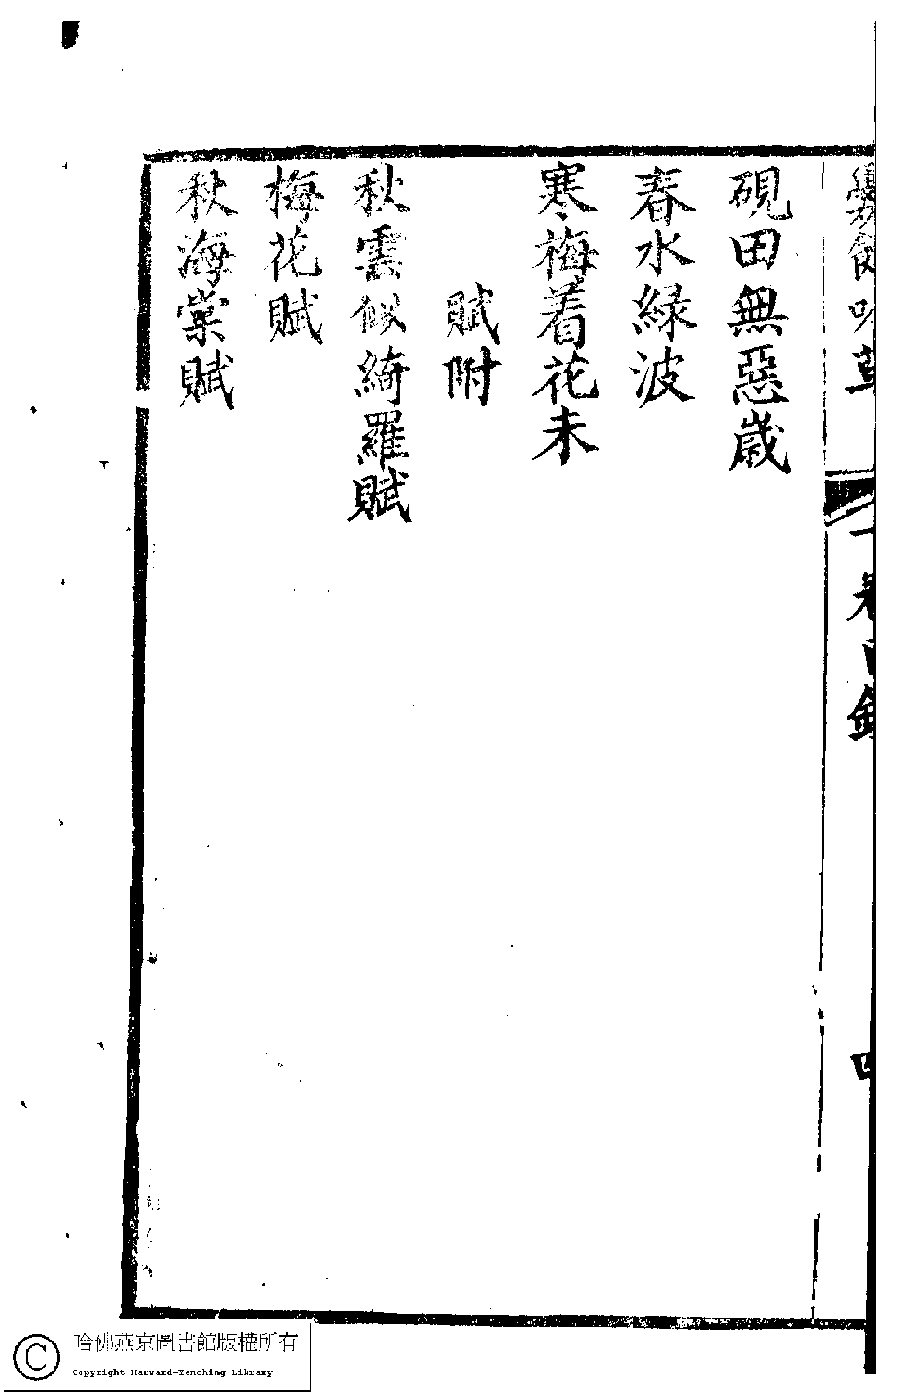 硯田無惡歲
春水緑波
寒梅着花未
賦附
秋雲似綺羅賦
梅花賦
秋海棠賦
一卷目錄
四
哈佛燕京圖書館版權所有
Copyright Harvard-Yenching Library